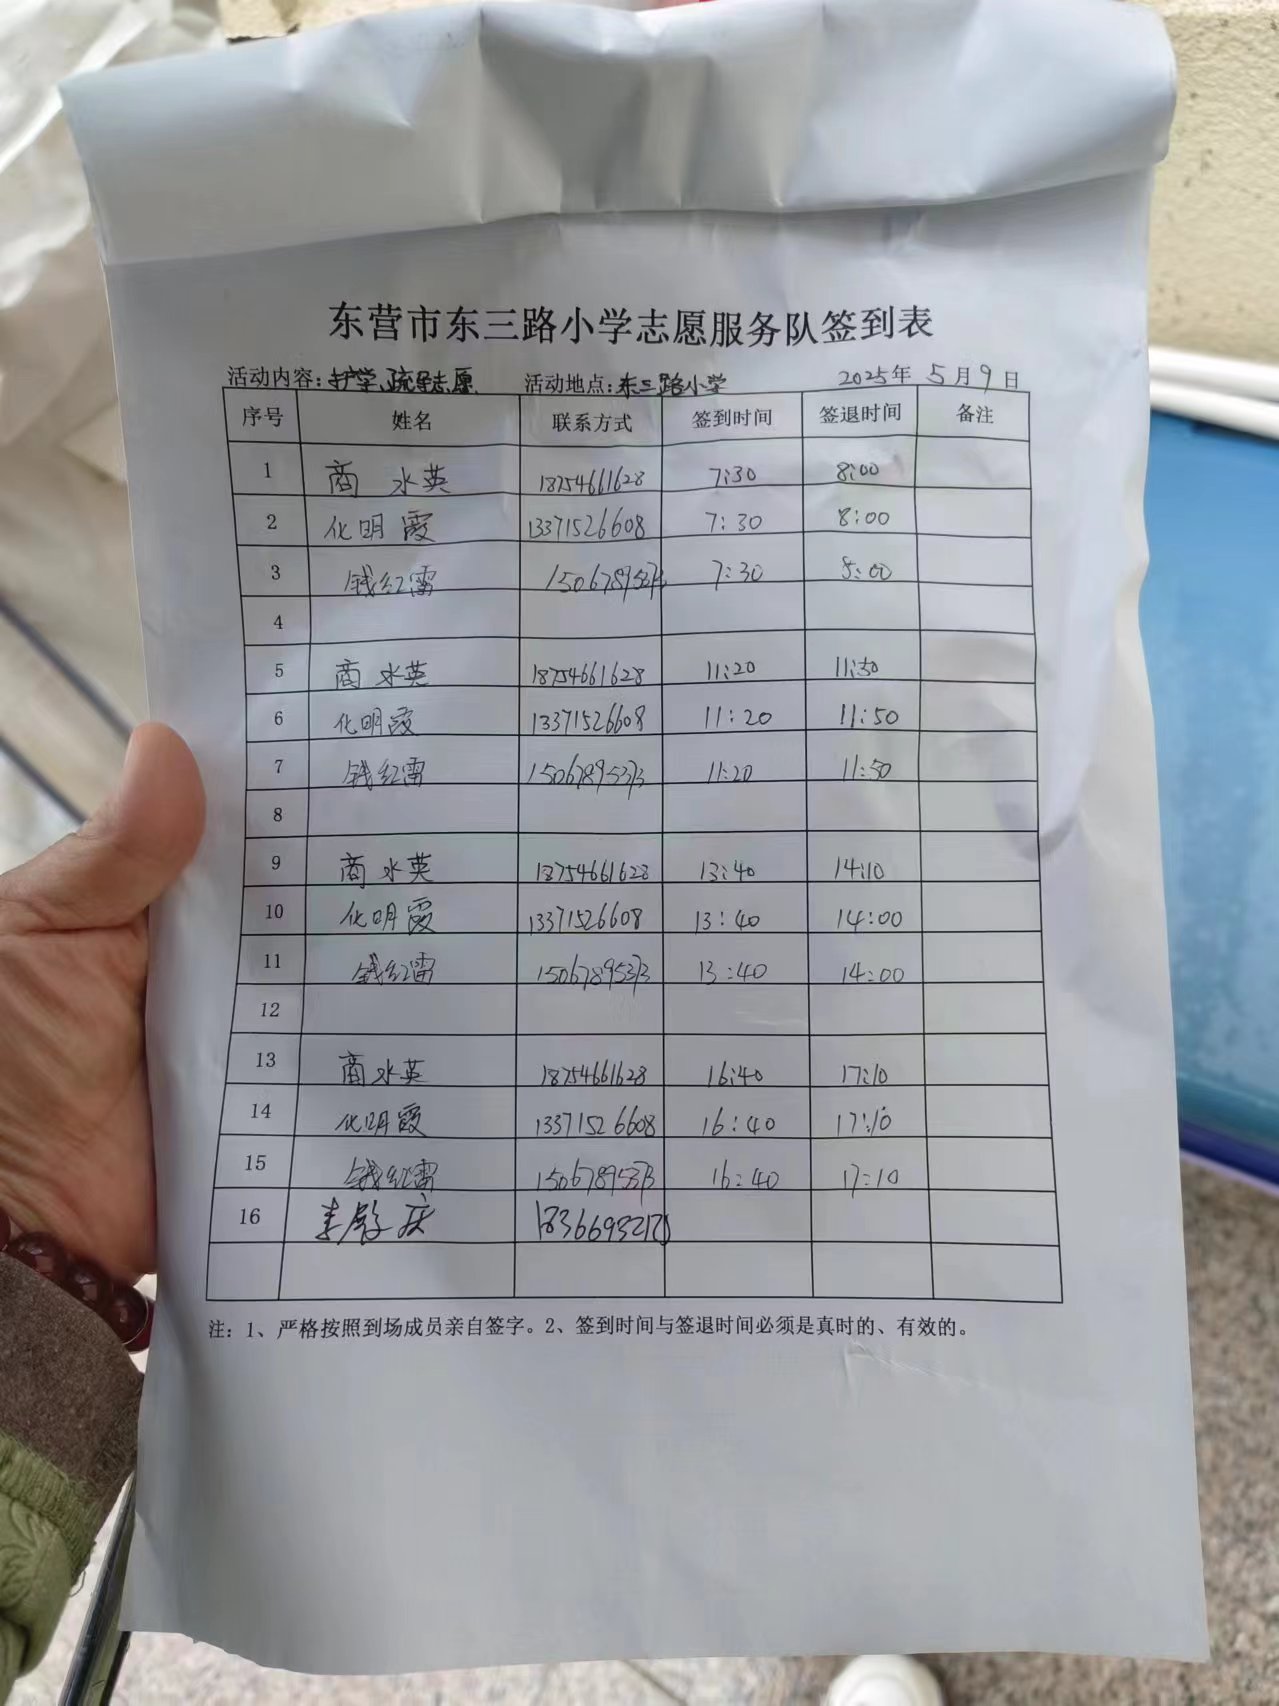 东营市东三路小学志愿服务队签到表
活动内容：护学、疏导志愿 活动地点：东三路小学 2025年 5月9日
序号 姓名 联系方式 签到时间 签退时间 备注
1 商水英 18754661628 7:30 8:00
2 化明霞 13371526608 7:30 8:00
3 钱红雷 7:30 8:00
4
5 商水英 18754661628 11:20 11:50
6 化明霞 13371526608 11:20 11:50
7 钱红雷 15067895373 11:20 11:50
8
9 商水英 18754661628 13:40 14:10
10 化明霞 13371526608 13:40 14:00
11 钱红雷 15067895373 13:40 14:00
12
13 商水英 18754661628 16:40 17:10
14 化明霞 13371526608 16:40 17:10
15 钱红雷 15067895373 16:40 17:10
16
注：1、严格按照到场成员亲自签字。2、签到时间与签退时间必须是真时的、有效的。